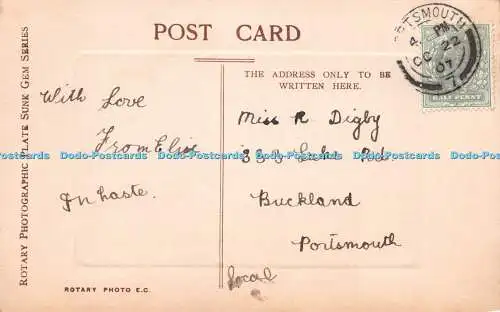 POST CARD
THE ADDRESS ONLY TO BE
WRITTEN HERE.
With Love
From Elsie
In haste.
Miss R Digby
Lake Rd
Buckland
Portsmouth
Local
PORTSMOUTH
4 PM
OC 22
07
7
HALF PENNY
ROTARY PHOTOGRAPHIC PLATE SUNK GEM SERIES
ROTARY PHOTO E.C.
Dodo-Postcards Dodo-Postcards Dodo-Postcards Dodo-Postcards Dodo-Postcards Dodo-Postcards